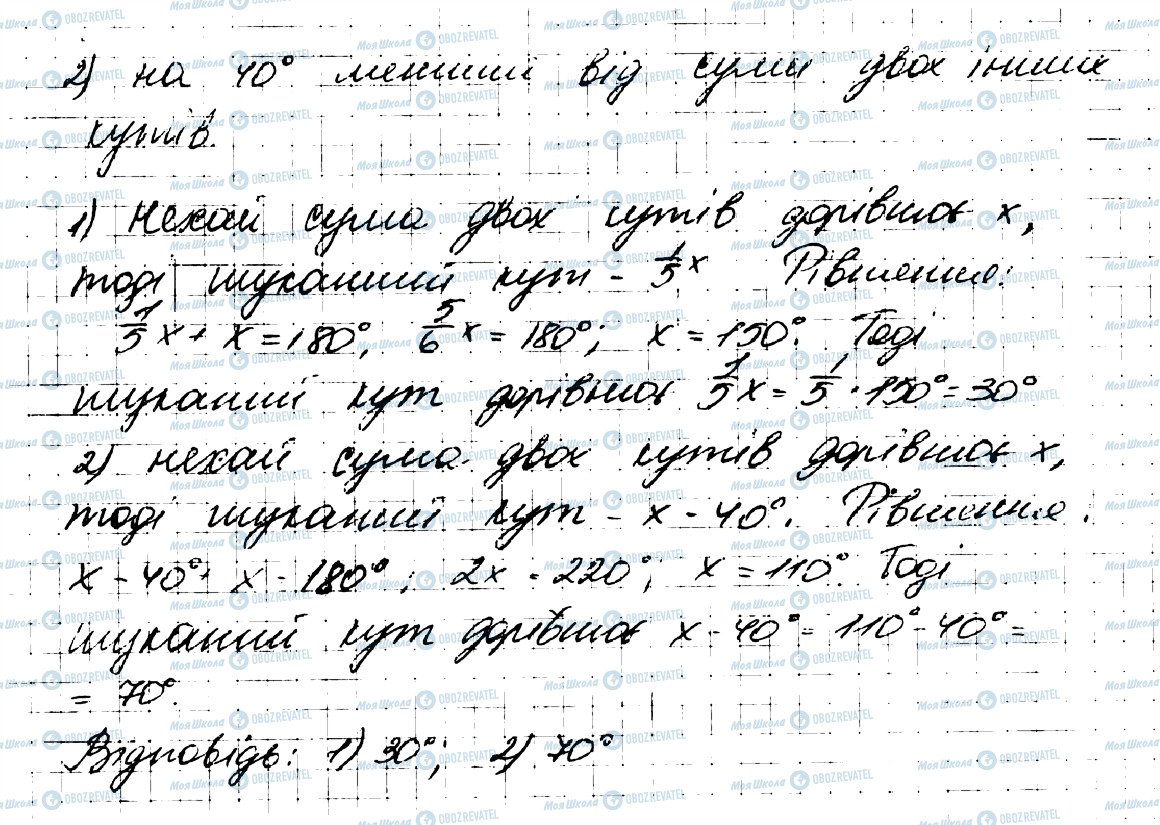 2) на 40° менший від суми двох інших
кутів.
1) Нехай сума двох кутів дорівнює x,
тоді шуканий кут - 1/5 x Рівняння:
1/5 x + x = 180°; 5/6 x = 180°; x = 150°. Тоді
шуканий кут дорівнює 1/5 x = 1/5 · 150° = 30°
2) нехай сума двох кутів дорівнює x,
тоді шуканий кут - x - 40°. Рівняння.
x - 40° + x - 180°; 2x = 220°; x = 110°. Тоді
шуканий кут дорівнює x - 40° = 110° - 40° =
= 70°.
Відповідь: 1) 30°; 2) 70°